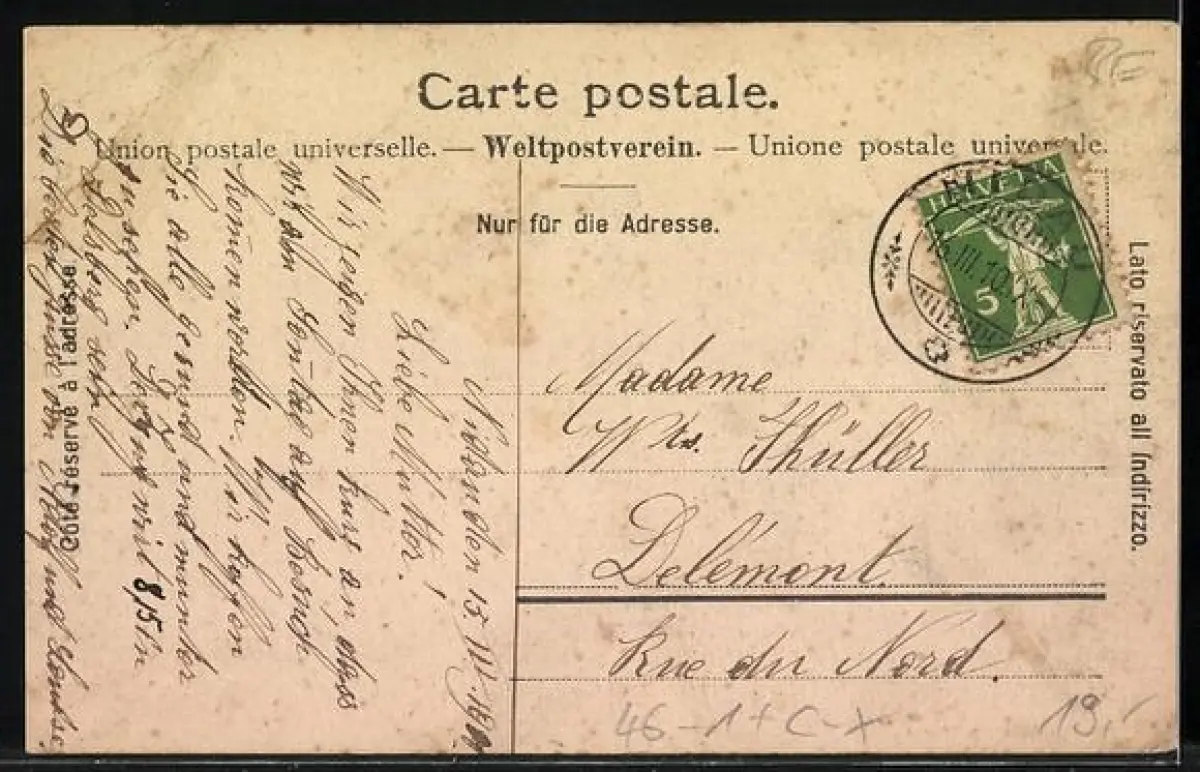 Carte postale.
Union postale universelle. — Weltpostverein. — Unione postale universale.
Nur für die Adresse.
Côté réservé à l'adresse
Lato riservato all indirizzo.
HELVETIA
5
III.10
Madame
Wwe. Schüller
Delémont.
Rue du Nord.
15. III. 1910
Liebe Mutter!
Wir zeigen Ihnen kurz an, dass
wir am Sonntag auf Besuch
kommen werden. Wir hoffen
Sie alle gesund und munter
anzusehen. 8,15 h.
Delsberg sein.
Die besten Grüsse von
46 - 1 + C - X
19.-